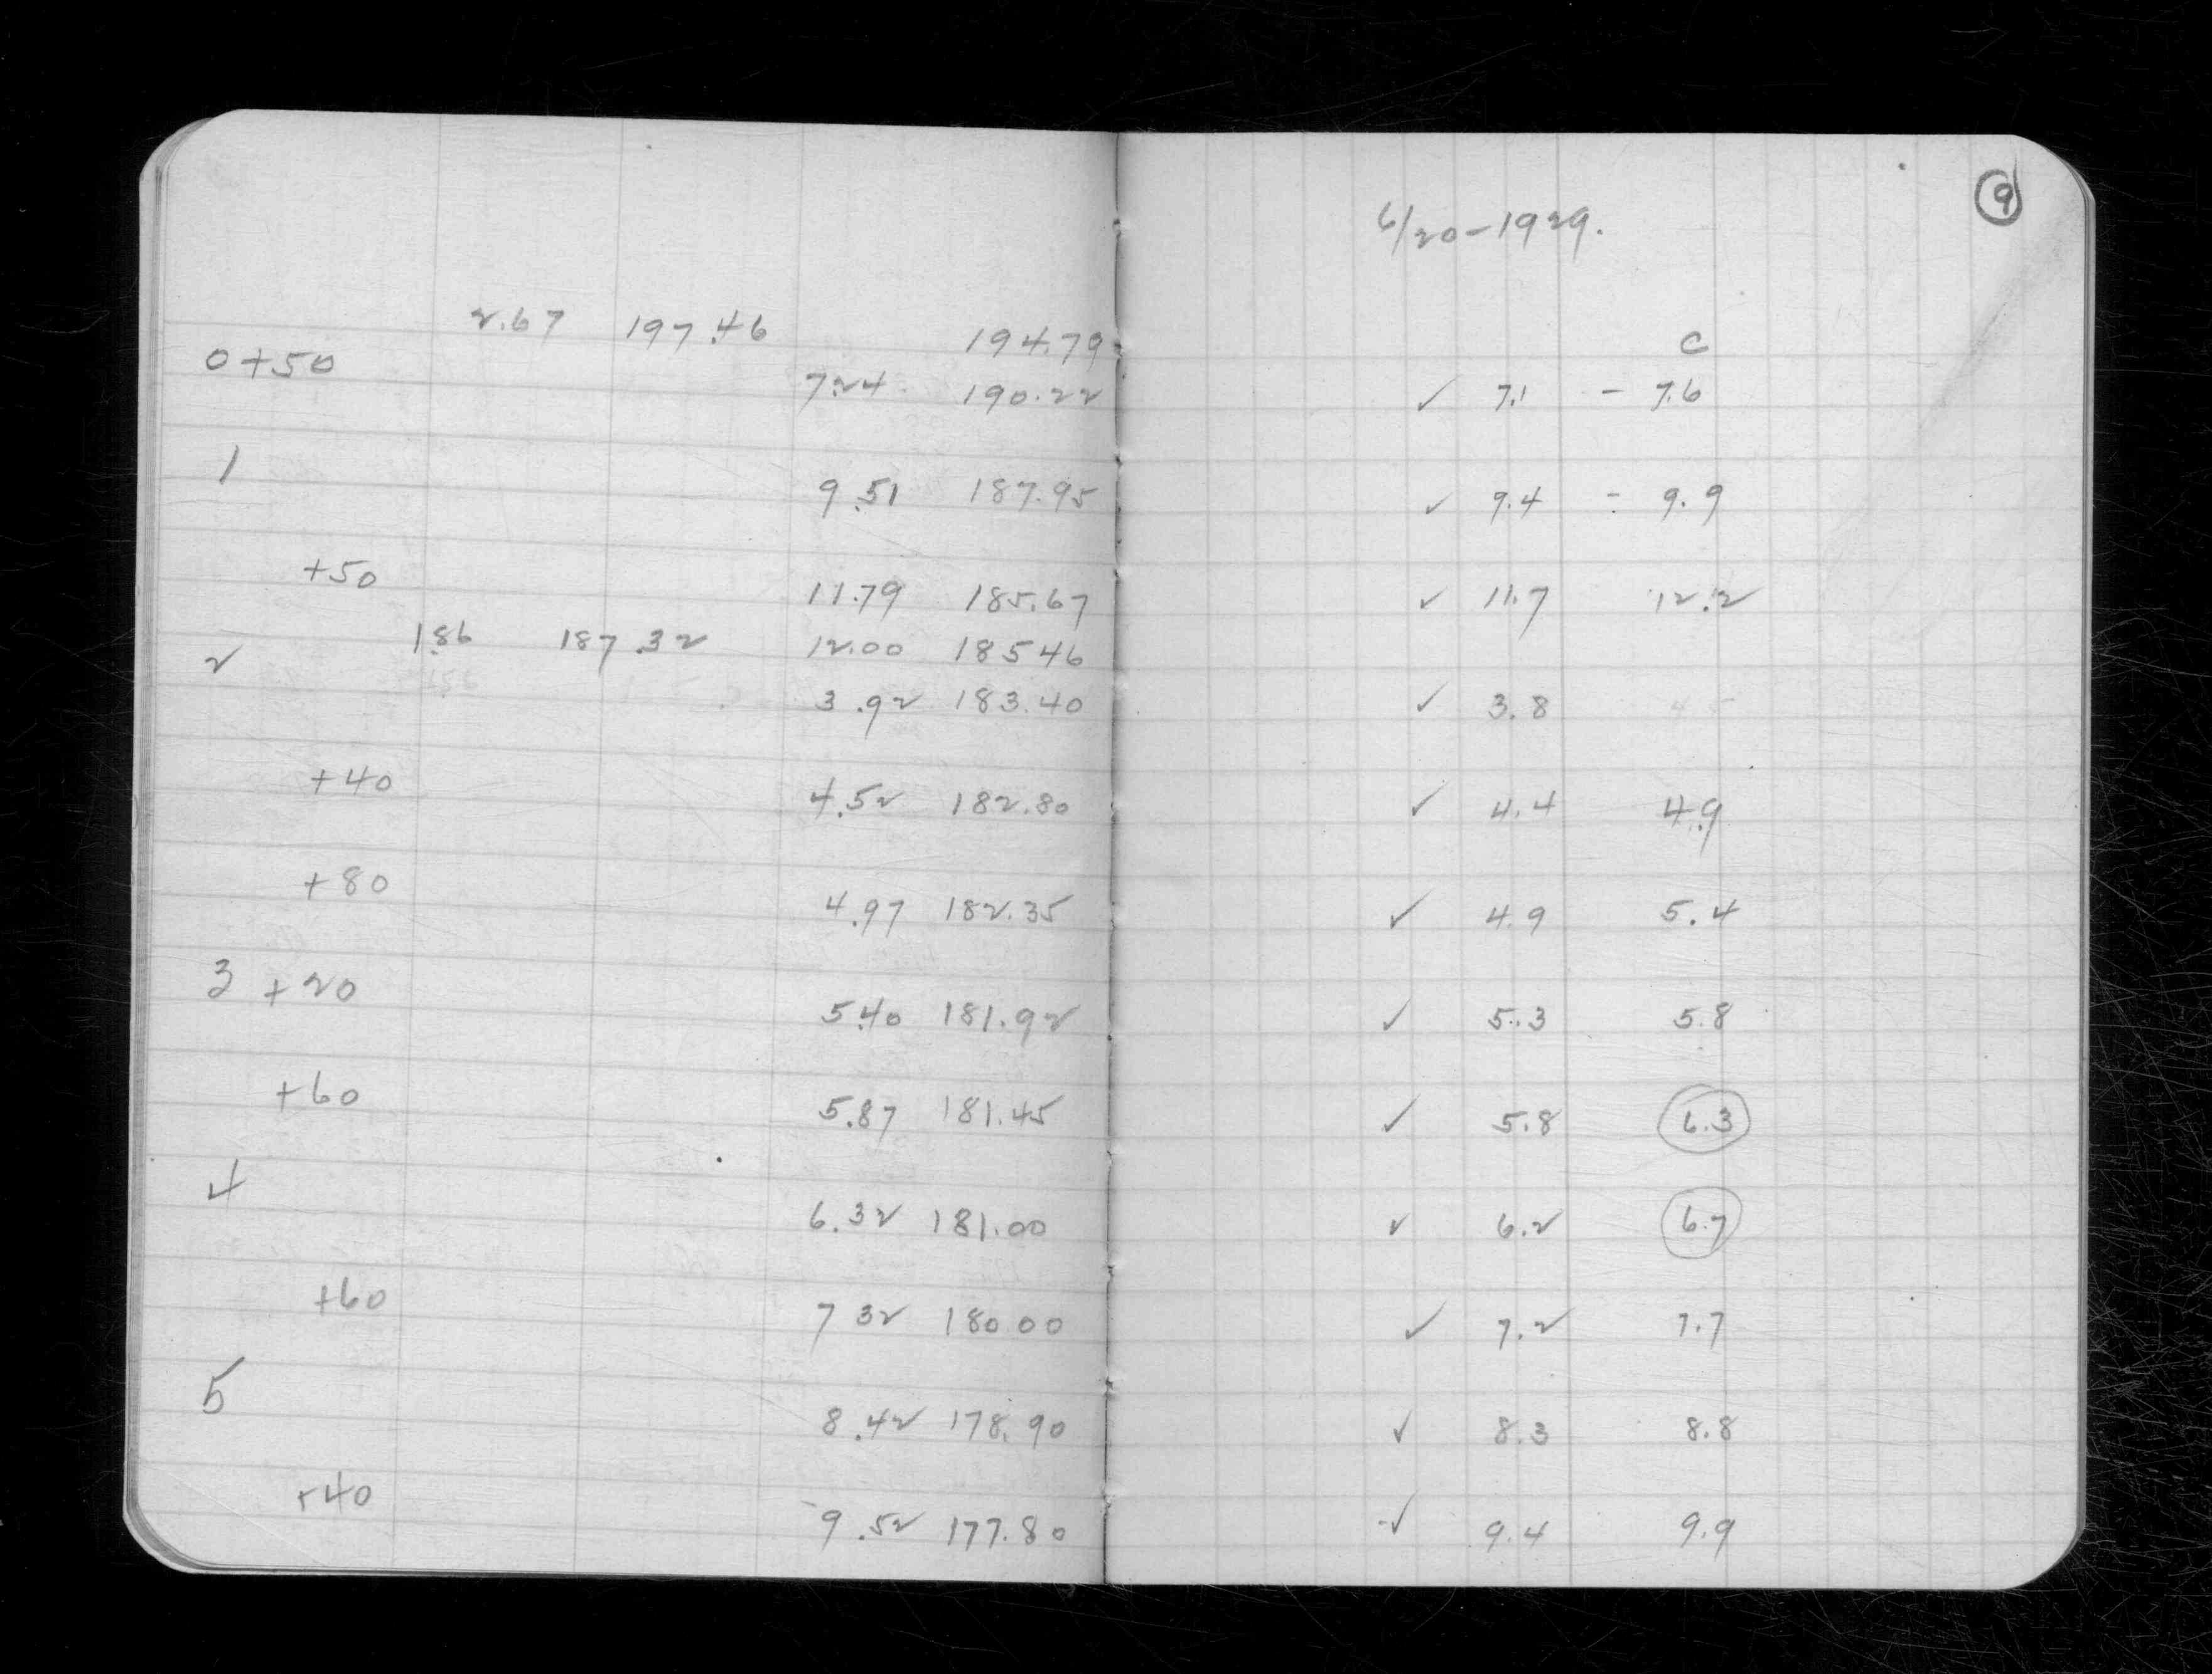 9
6/20-1929.
2.67 197.46 194.79 C
0+50 7.24 190.22 ✓ 7.1 - 7.6
1 9.51 187.95 ✓ 9.4 - 9.9
+50 11.79 185.67 ✓ 11.7 12.2
1.86 187.32 12.00 185 46
2 3.92 183.40 ✓ 3.8
+40 4.52 182.80 ✓ 4.4 4.9
+80 4.97 182.35 ✓ 4.9 5.4
3 +20 5.40 181.92 ✓ 5.3 5.8
+60 5.87 181.45 ✓ 5.8 6.3
4 6.32 181.00 ✓ 6.2 6.7
+60 7 32 180 00 ✓ 7.2 7.7
5 8.42 178.90 ✓ 8.3 8.8
+40 9.52 177.80 ✓ 9.4 9.9